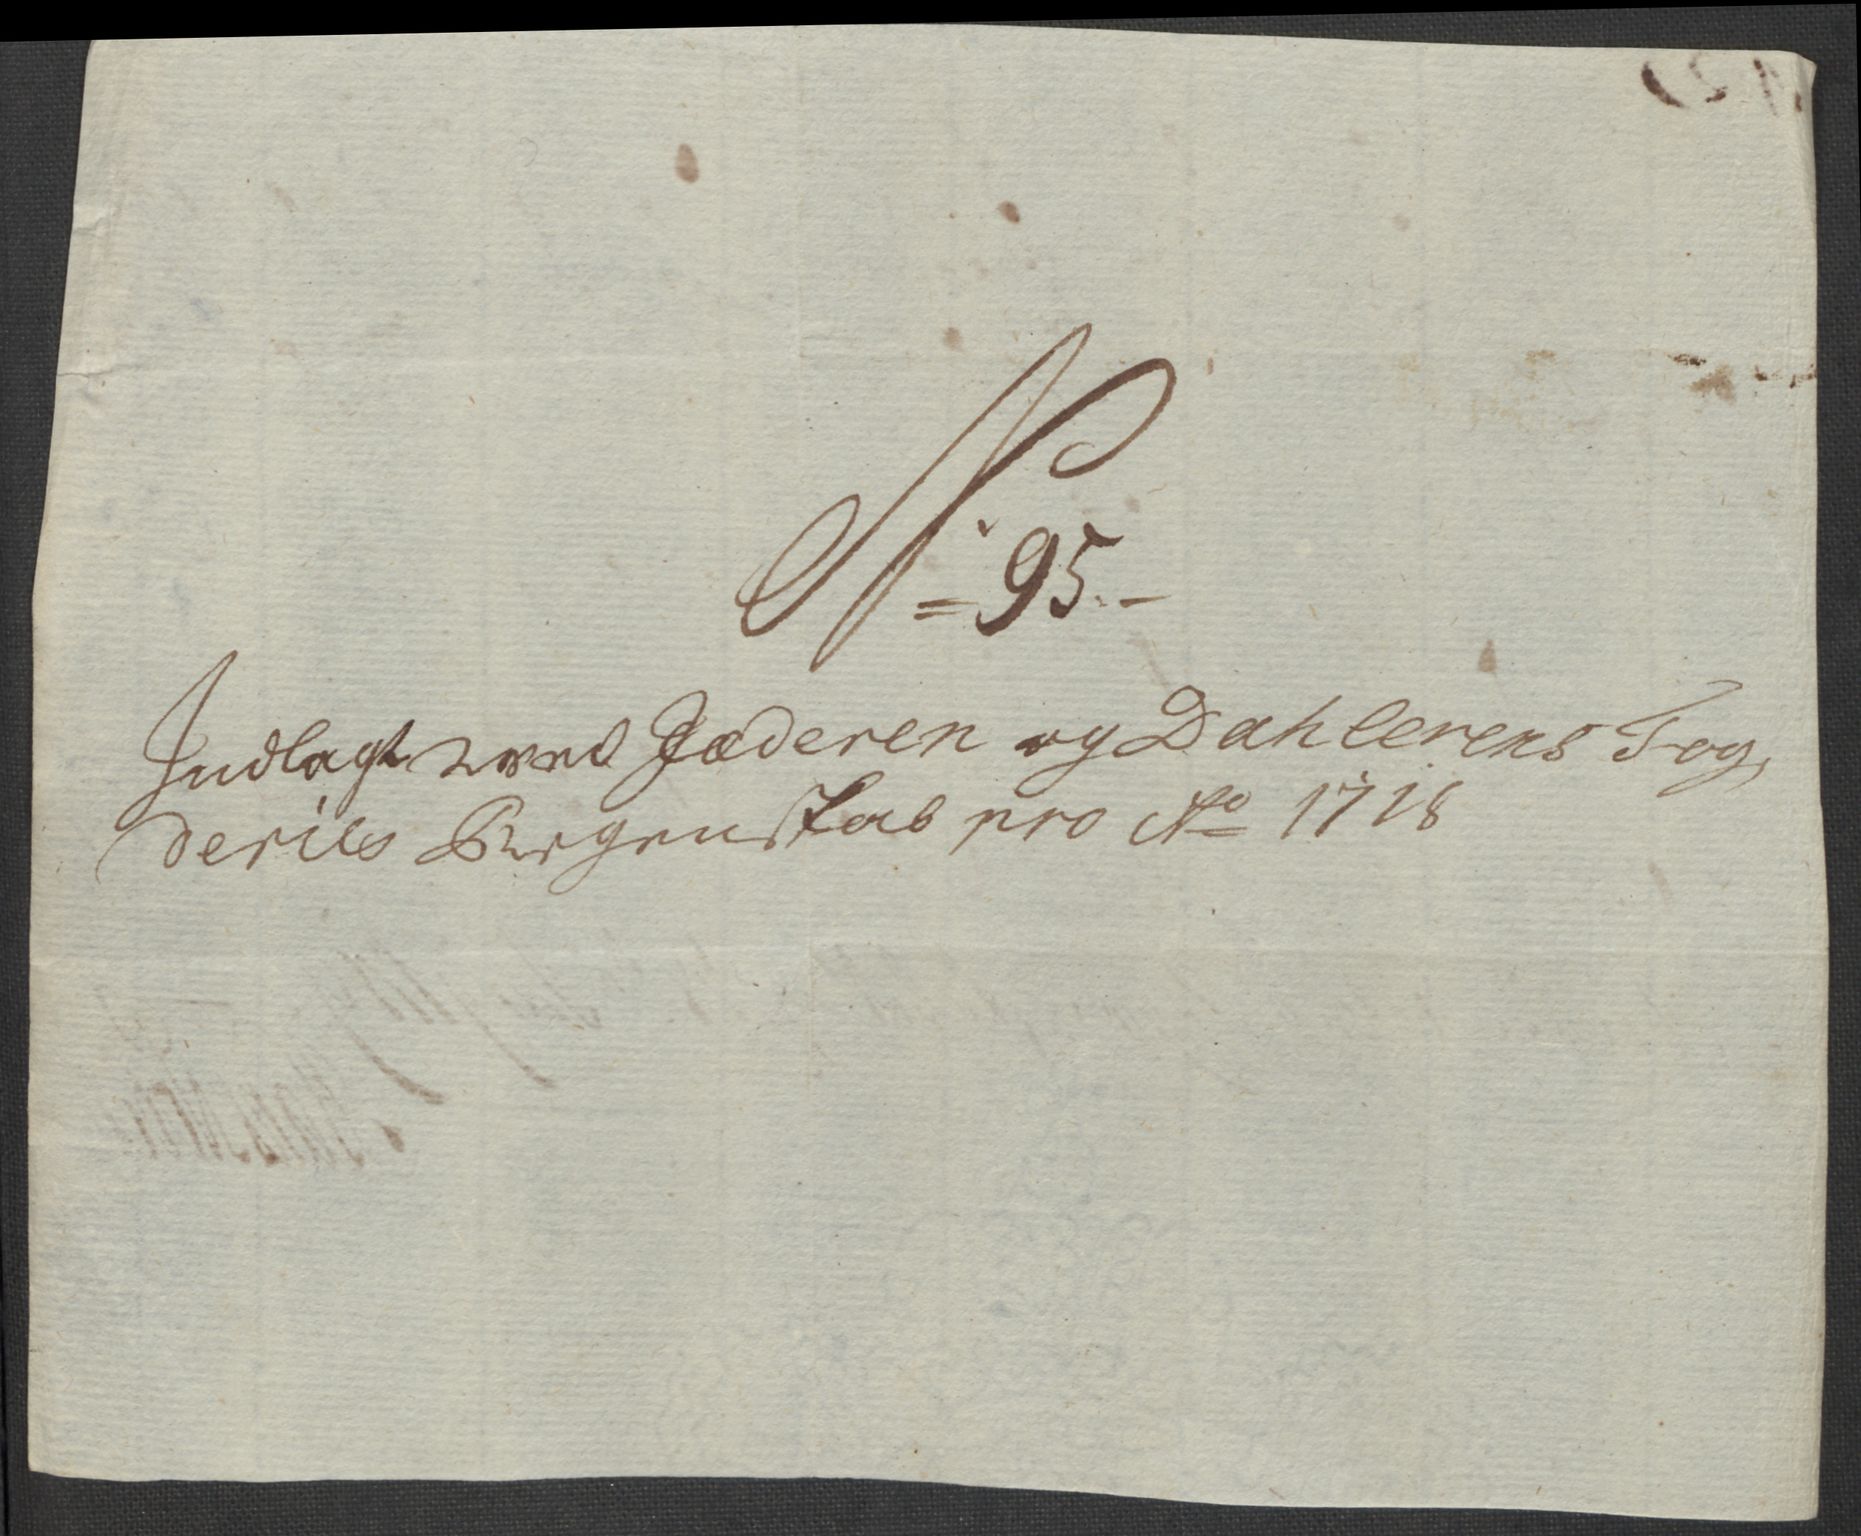 No 95.-
Indlagt ved Jæderen og Dahlerens Fog,
deriis Regenskab pro Ao 1718